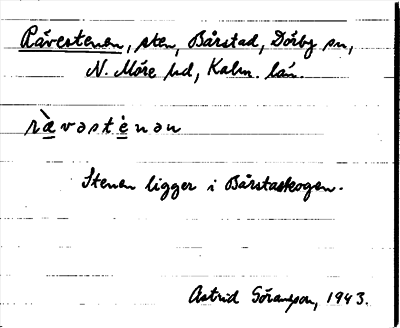 Rävestenen, sten, Bårstad, Dörby sn,
N. Möre hd, Kalm. län.
rä̀vəstè̠nən
Stenen ligger i Bårstaskogen.
Astrid Göransson, 1943.